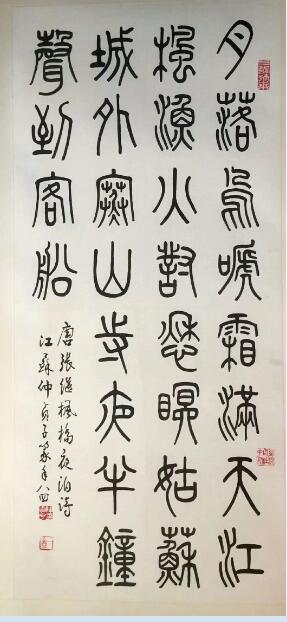 月落烏嗁霜滿天江
楓漁火對愁瞑姑蘇
城外寒山寺夜半鐘
聲到客船
唐張繼楓橋夜泊詩
江蘇仲貞子篆年八四